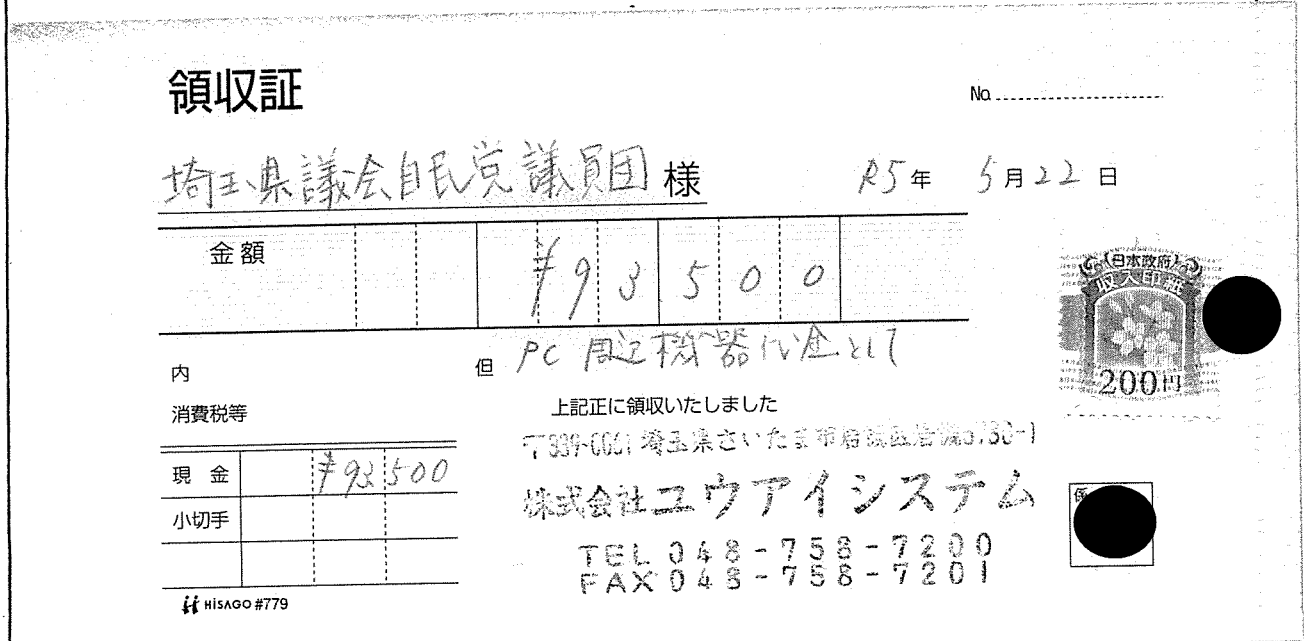 領収証
No.
埼玉県議会自民党議員団 様
R5年 5月22日
金額 ¥93500
但 PC周辺機器代金として
内
消費税等
上記正に領収いたしました
現金 ¥93500
小切手
〒339-0061 埼玉県さいたま市岩槻区岩槻
株式会社ユウアイシステム
TEL 048-758-7200
FAX 048-758-7201
日本政府
収入印紙
200円
係
HISAGO #779